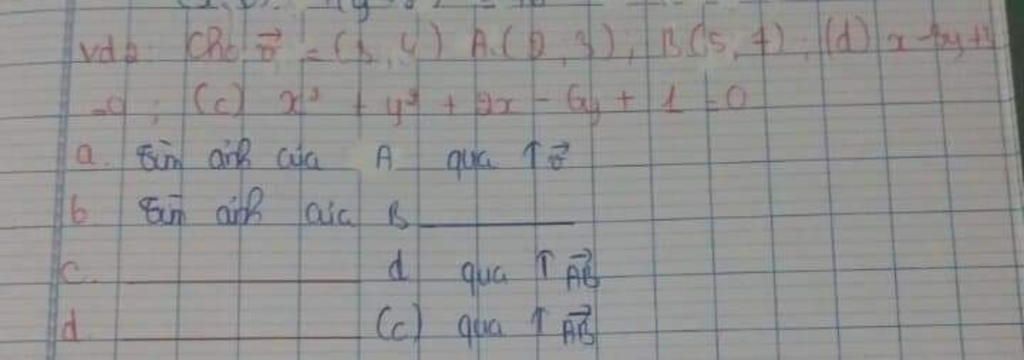 Cho v⃗ = ( , 4) A ( , 3), B(5, 7), (d) x
=0; (C) x² + y² + 2x - 6y + 1 = 0
a. tìm ảnh của A qua T v⃗
b tìm ảnh của B ________
c. ________ d qua T AB⃗
d ________ (C) qua T AB⃗